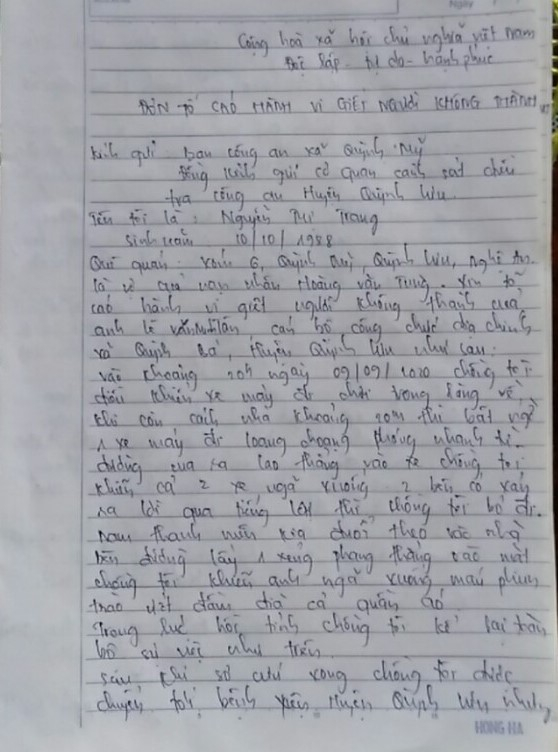 Ngày
Cộng hoà xã hội chủ nghĩa việt nam
Độc lập - tự do - hạnh phúc
ĐƠN TỐ CÁO HÀNH VI GIẾT NGƯỜI KHÔNG THÀNH
kính gửi ban công an xã Quỳnh Mỹ
Đồng kính gửi cơ quan cảnh sát điều
tra công an Huyện Quỳnh Lưu
Tên tôi là : Nguyễn Thị Trang
sinh năm 10/10/1988
Quê quán : xóm 6, Quỳnh Mỹ, Quỳnh Lưu, Nghệ An.
là vợ của nạn nhân Hoàng văn Tung. xin tố
cáo hành vi giết người không thành của
anh lê văn cán bộ công chức địa chính
xã Quỳnh Bá, Huyện Quỳnh lưu như sau:
vào khoảng 20h ngày 09/09/2020 chồng tôi
điều khiển xe máy đi chơi trong làng về,
khi còn cách nhà khoảng 20m thì bất ngờ
1 xe máy đi loạng choạng phóng nhanh từ
đường lao thẳng vào xe chồng tôi
khiến cả 2 xe ngã xuống 2 bên có xảy
ra lời qua tiếng lại thì chồng tôi bỏ đi.
nam thanh niên kia đuổi theo vào nhà
bên đường lấy 1 xẻng phang thẳng vào mặt
chồng tôi khiến anh ngã xuống máu phun
trào ướt đầm đìa cả quần áo.
Trong lúc hồi tỉnh chồng tôi kể lại toàn
bộ sự việc như trên
sau khi sơ cứu xong chồng tôi được
chuyển tới bệnh viện Huyện Quỳnh Lưu nhưng
HONG HA